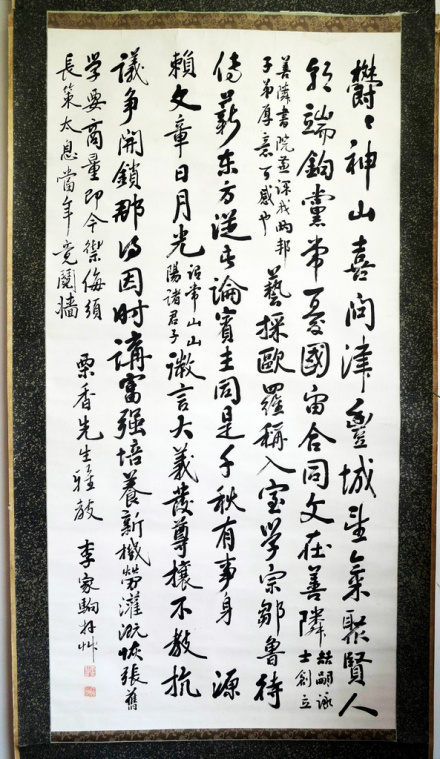 欝々神山喜問津豊城聖氣聚賢人
鉤黨常憂國宙合同文在善隣
士創立
善隣書院並課我両邦
子弟厚意可感也
藝採歐羅稱入室學宗鄒魯待
傳薪東方從古論賓主同是千秋有事身 源
賴文章日月光
謂常山山
陽諸君子
微言大義護尊攘不教抗
議爭開鎖那得因時講富强培養新機勞灌漑恢張舊
學要商量即今禦侮須
長策太息當年竟鬩牆
栗香先生雅教
李家駒拜艸